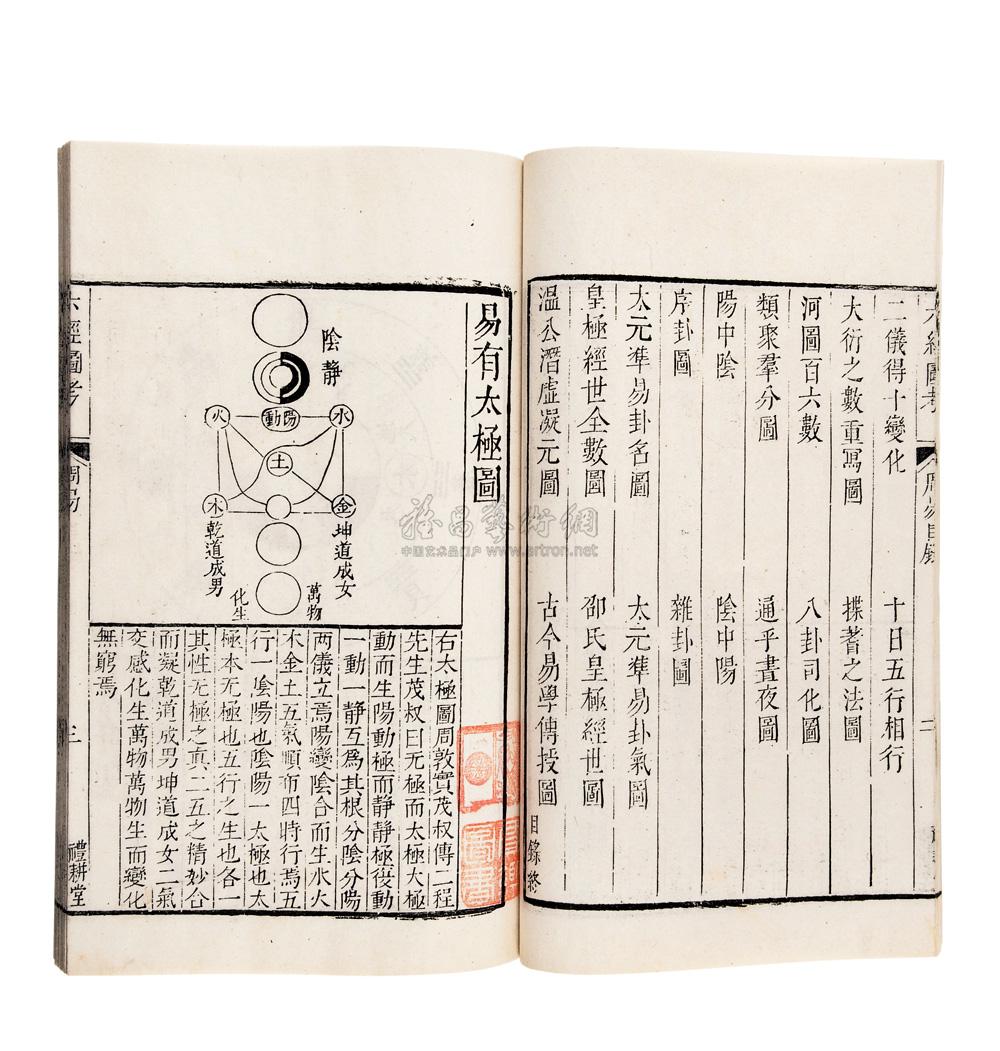 六經圖考
周易目錄
二儀得十變化
十日五行相行
大衍之數重寫圖
揲蓍之法圖
河圖百六數
八卦司化圖
類聚羣分圖
通乎晝夜圖
陽中陰
陰中陽
序卦圖
雜卦圖
太元準易卦名圖
太元準易卦氣圖
皇極經世全數圖
邵氏皇極經世圖
溫公潛虛凝元圖
古今易學傳授圖
目錄終
易有太極圖
陰靜
陽動
水
火
土
金
木
坤道成女
乾道成男
萬物
化生
右太極圖周敦實茂叔傳二程
先生茂叔曰无極而太極太極
動而生陽動極而静静極復動
一動一静互爲其根分陰分陽
两儀立焉陽變陰合而生水火
木金土五氣順布四時行焉五
行一陰陽也陰陽一太極也太
極本无極也五行之生也各一
其性无極之真二五之精妙合
而凝乾道成男坤道成女二氣
交感化生萬物萬物生而變化
無窮焉
六經圖考
周易
三
禮耕堂
雅昌藝術網
中国艺术品门户 www.artron.net